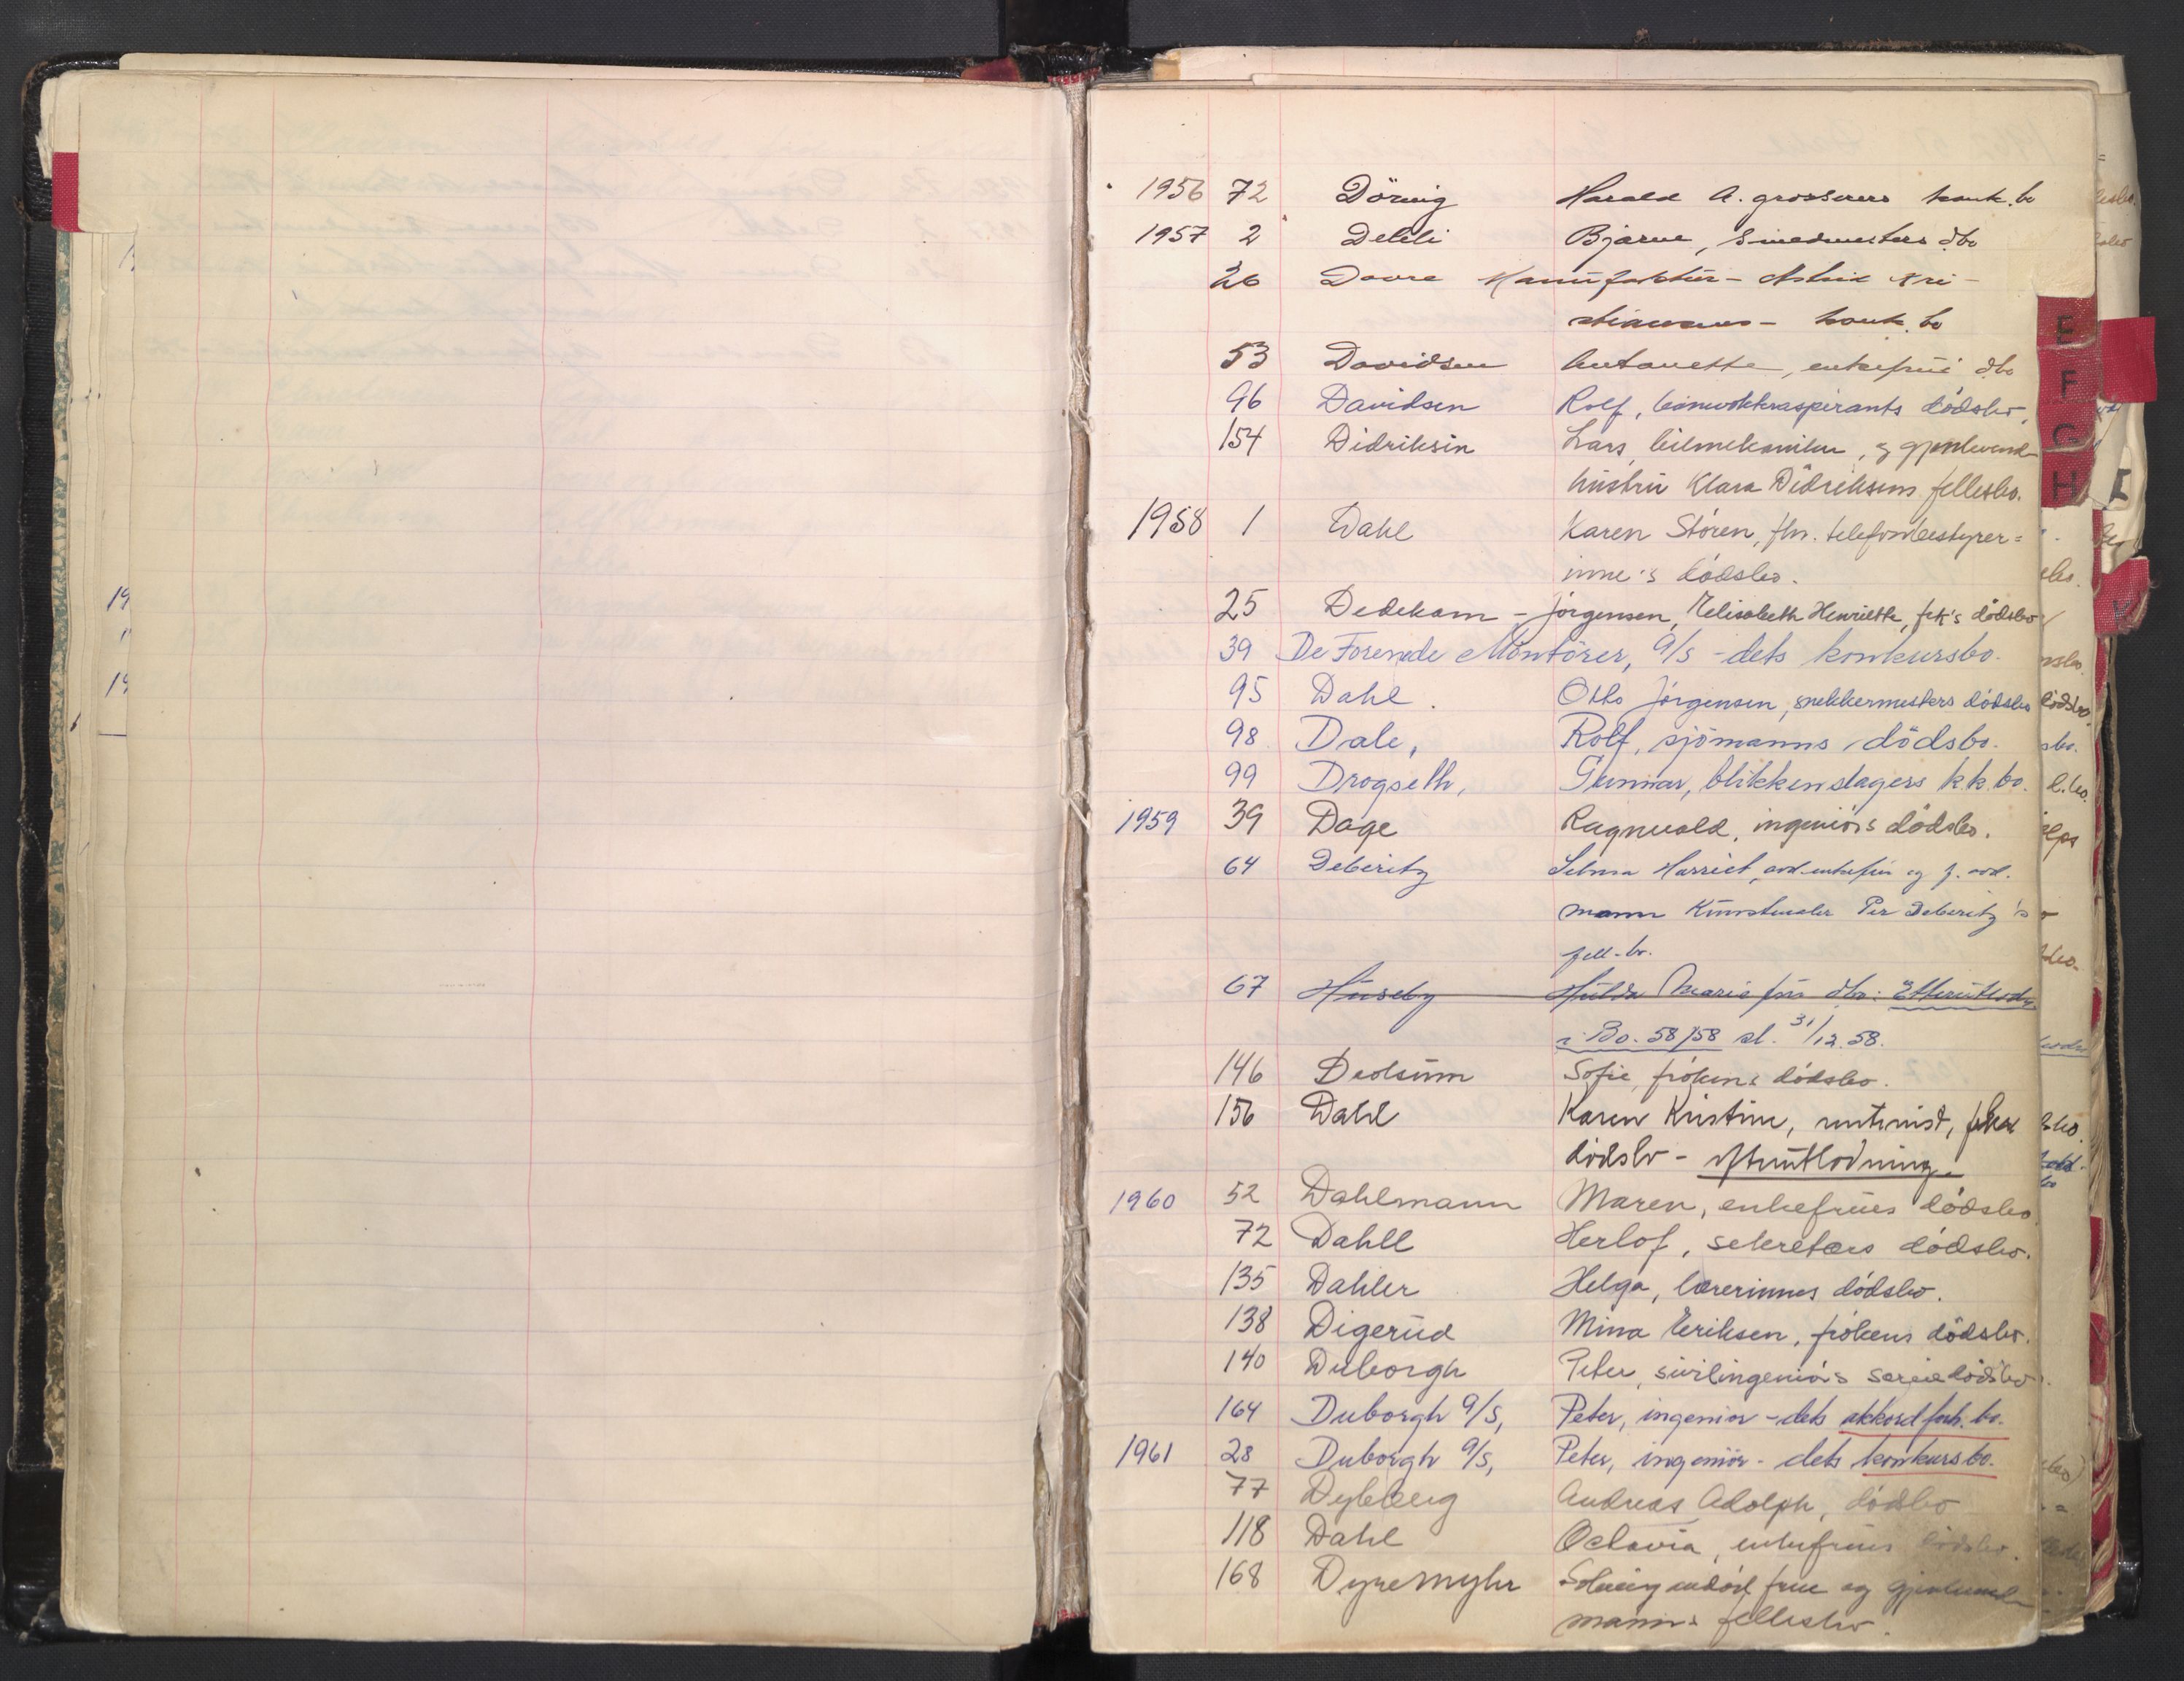 1956 72 Döring Harald A. grosserers konk.bo
1957 2 Delili Bjarne, Smedmesters dbo
26 Dovre Manufaktur - Astrid Kri-
stiansens - konk.bo
53 Davidsen Antonette, enkefrui dbo
96 Davidsen Rolf, dödsbo
154 Didriksen Lars, bilmekaniker, og gjenlevende
hustru Klara Didriksens fellesbo.
1958 1 Dahl Karen Stören, frk. telefonbestyrer=
inne's dödsbo.
25 Dedekam - Jörgensen, Elisabeth Henriette, frk's dödsbo
39 De Forenede Montörer, A/S - dets konkursbo.
95 Dahl. Otto Jörgensen, snekkermesters dödsbo
98 Dale, Rolf, sjömanns dödsbo.
99 Drogseth, Gunnar, blikkenslagers k.k.bo.
1959 39 Dage Ragnvald, ingeniörs dödsbo.
64 Deberitz Selma Harriet, avd. enkefru og f. avd.
mann Kunstmaler Per Deberitz's
fell-bo.
67 Huseby Hulda Marie frus dbo: Etterutlodn
i Bo. 58/58 sl. 31/12.58.
146 Deolsum Sofie, frökens dödsbo.
156 Dahl Karen Kristine, frkens
dödsbo - efterutlodning.
1960 52 Dahlmann Maren, enkefrues dödsbo
72 Dahll Herlof, sekretærs dödsbo.
135 Dahler Helga, lærerinnes dödsbo.
138 Digerud Mina Eriksen, frökens dödsbo.
140 Duborgh Peter, sivilingeniörs særiedödsbo
164 Duborgh A/S, Peter, ingeniör - dets akkordforh. bo.
1961 28 Duborgh A/S, Peter, ingeniör - dets konkursbo.
77 Dybberg Andreas Adolph, dödsbo
118 Dahl Octavia, enkefrues dödsbo.
168 Dyremyhr Solveig frue og gjenlevende
manns fellesbo.
E
F
G
H
I